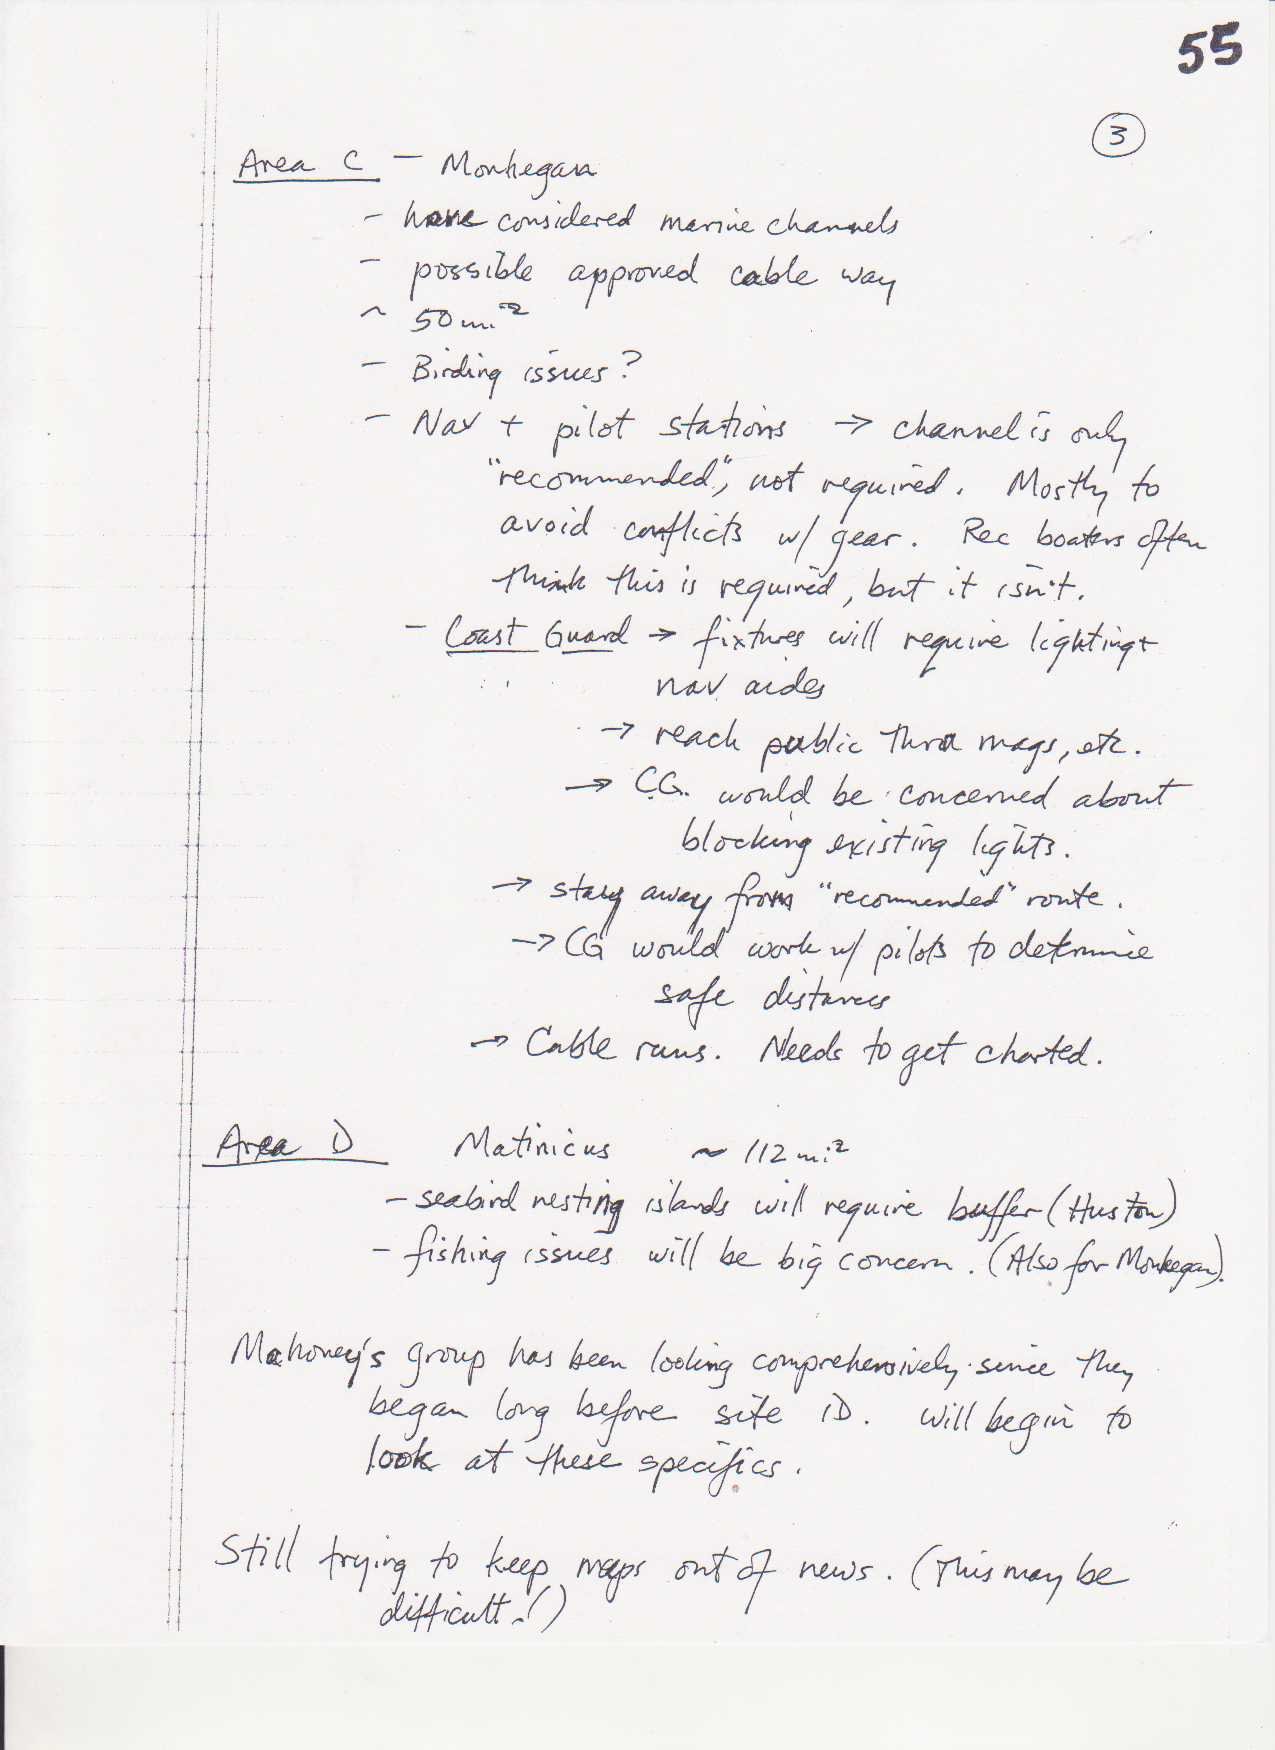 55
3
Area C - Monhegan
- have considered marine channels
- possible approved cable way
~ 50 mi²
- Birding issues?
- Nav + pilot stations → channel is only
"recommended", not required. Mostly to
avoid conflicts w/ gear. Rec boaters often
think this is required, but it isn't.
- Coast Guard → fixtures will require lighting +
nav aides
→ reach public thru mags, etc.
→ C.G. would be concerned about
blocking existing lights.
→ stay away from "recommended" route.
→ CG would work w/ pilots to determine
safe distances
→ Cable runs. Needs to get charted.
Area D Matinicus ~ 112 mi²
- seabird nesting islands will require buffer (Huston)
- fishing issues will be big concern. (Also for Monhegan).
Mahoney's group has been looking comprehensively since they
began long before site ID. Will begin to
look at these specifics.
Still trying to keep maps out of news. (This may be
difficult!)